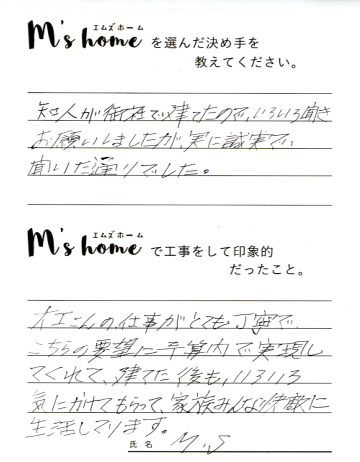 エムズホーム
M's home を選んだ決め手を
教えてください。
知人が御社で建てたので、いろいろ聞き
お願いしましたが、実に誠実で、
聞いた通りでした。
エムズホーム
M's home で工事をして印象的
だったこと。
大工さんの仕事がとても丁寧で、
こちらの要望に予算内で実現し
てくれて、建てた後も、いろいろ
気にかけてもらって、家族みんな快敵に
生活してります。
氏名 M.S